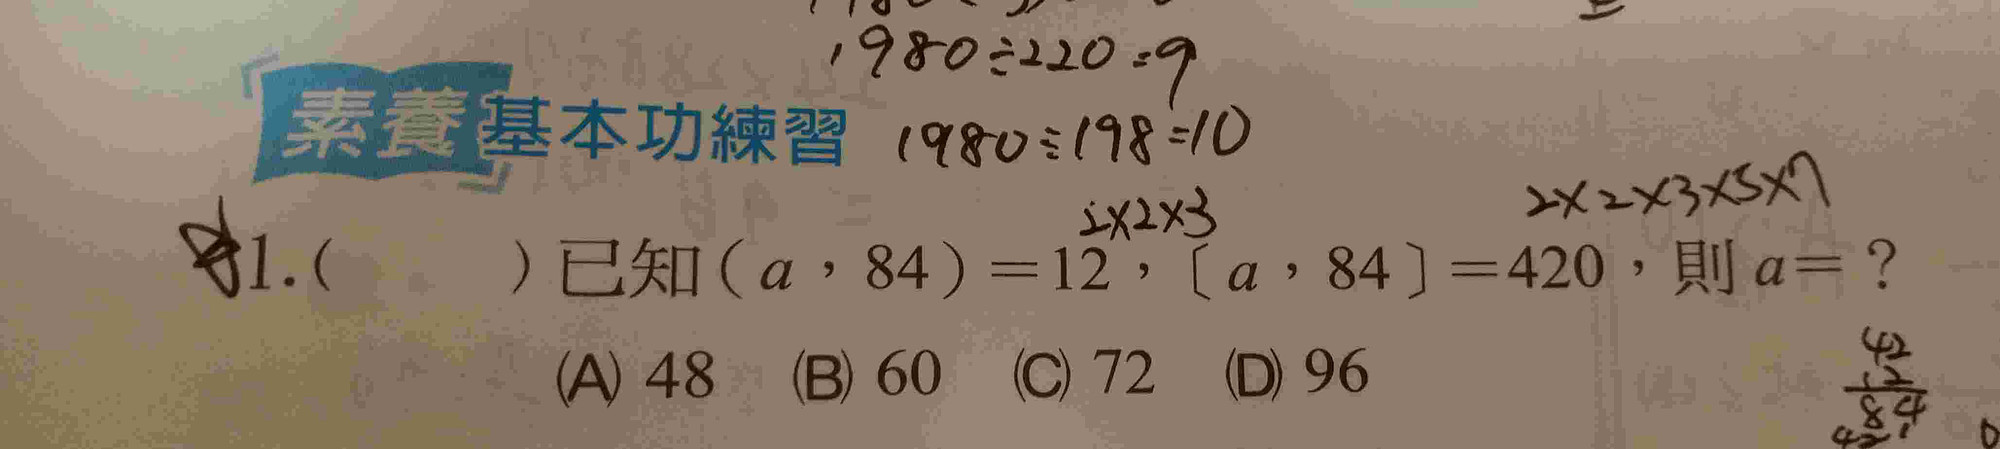 1980÷220=9
素養基本功練習 1980÷198=10
2×2×3 2×2×3×5×7
1.( ) 已知(a,84)=12,〔a,84〕=420,則a=?
(A) 48 (B) 60 (C) 72 (D) 96
42
12
84
42